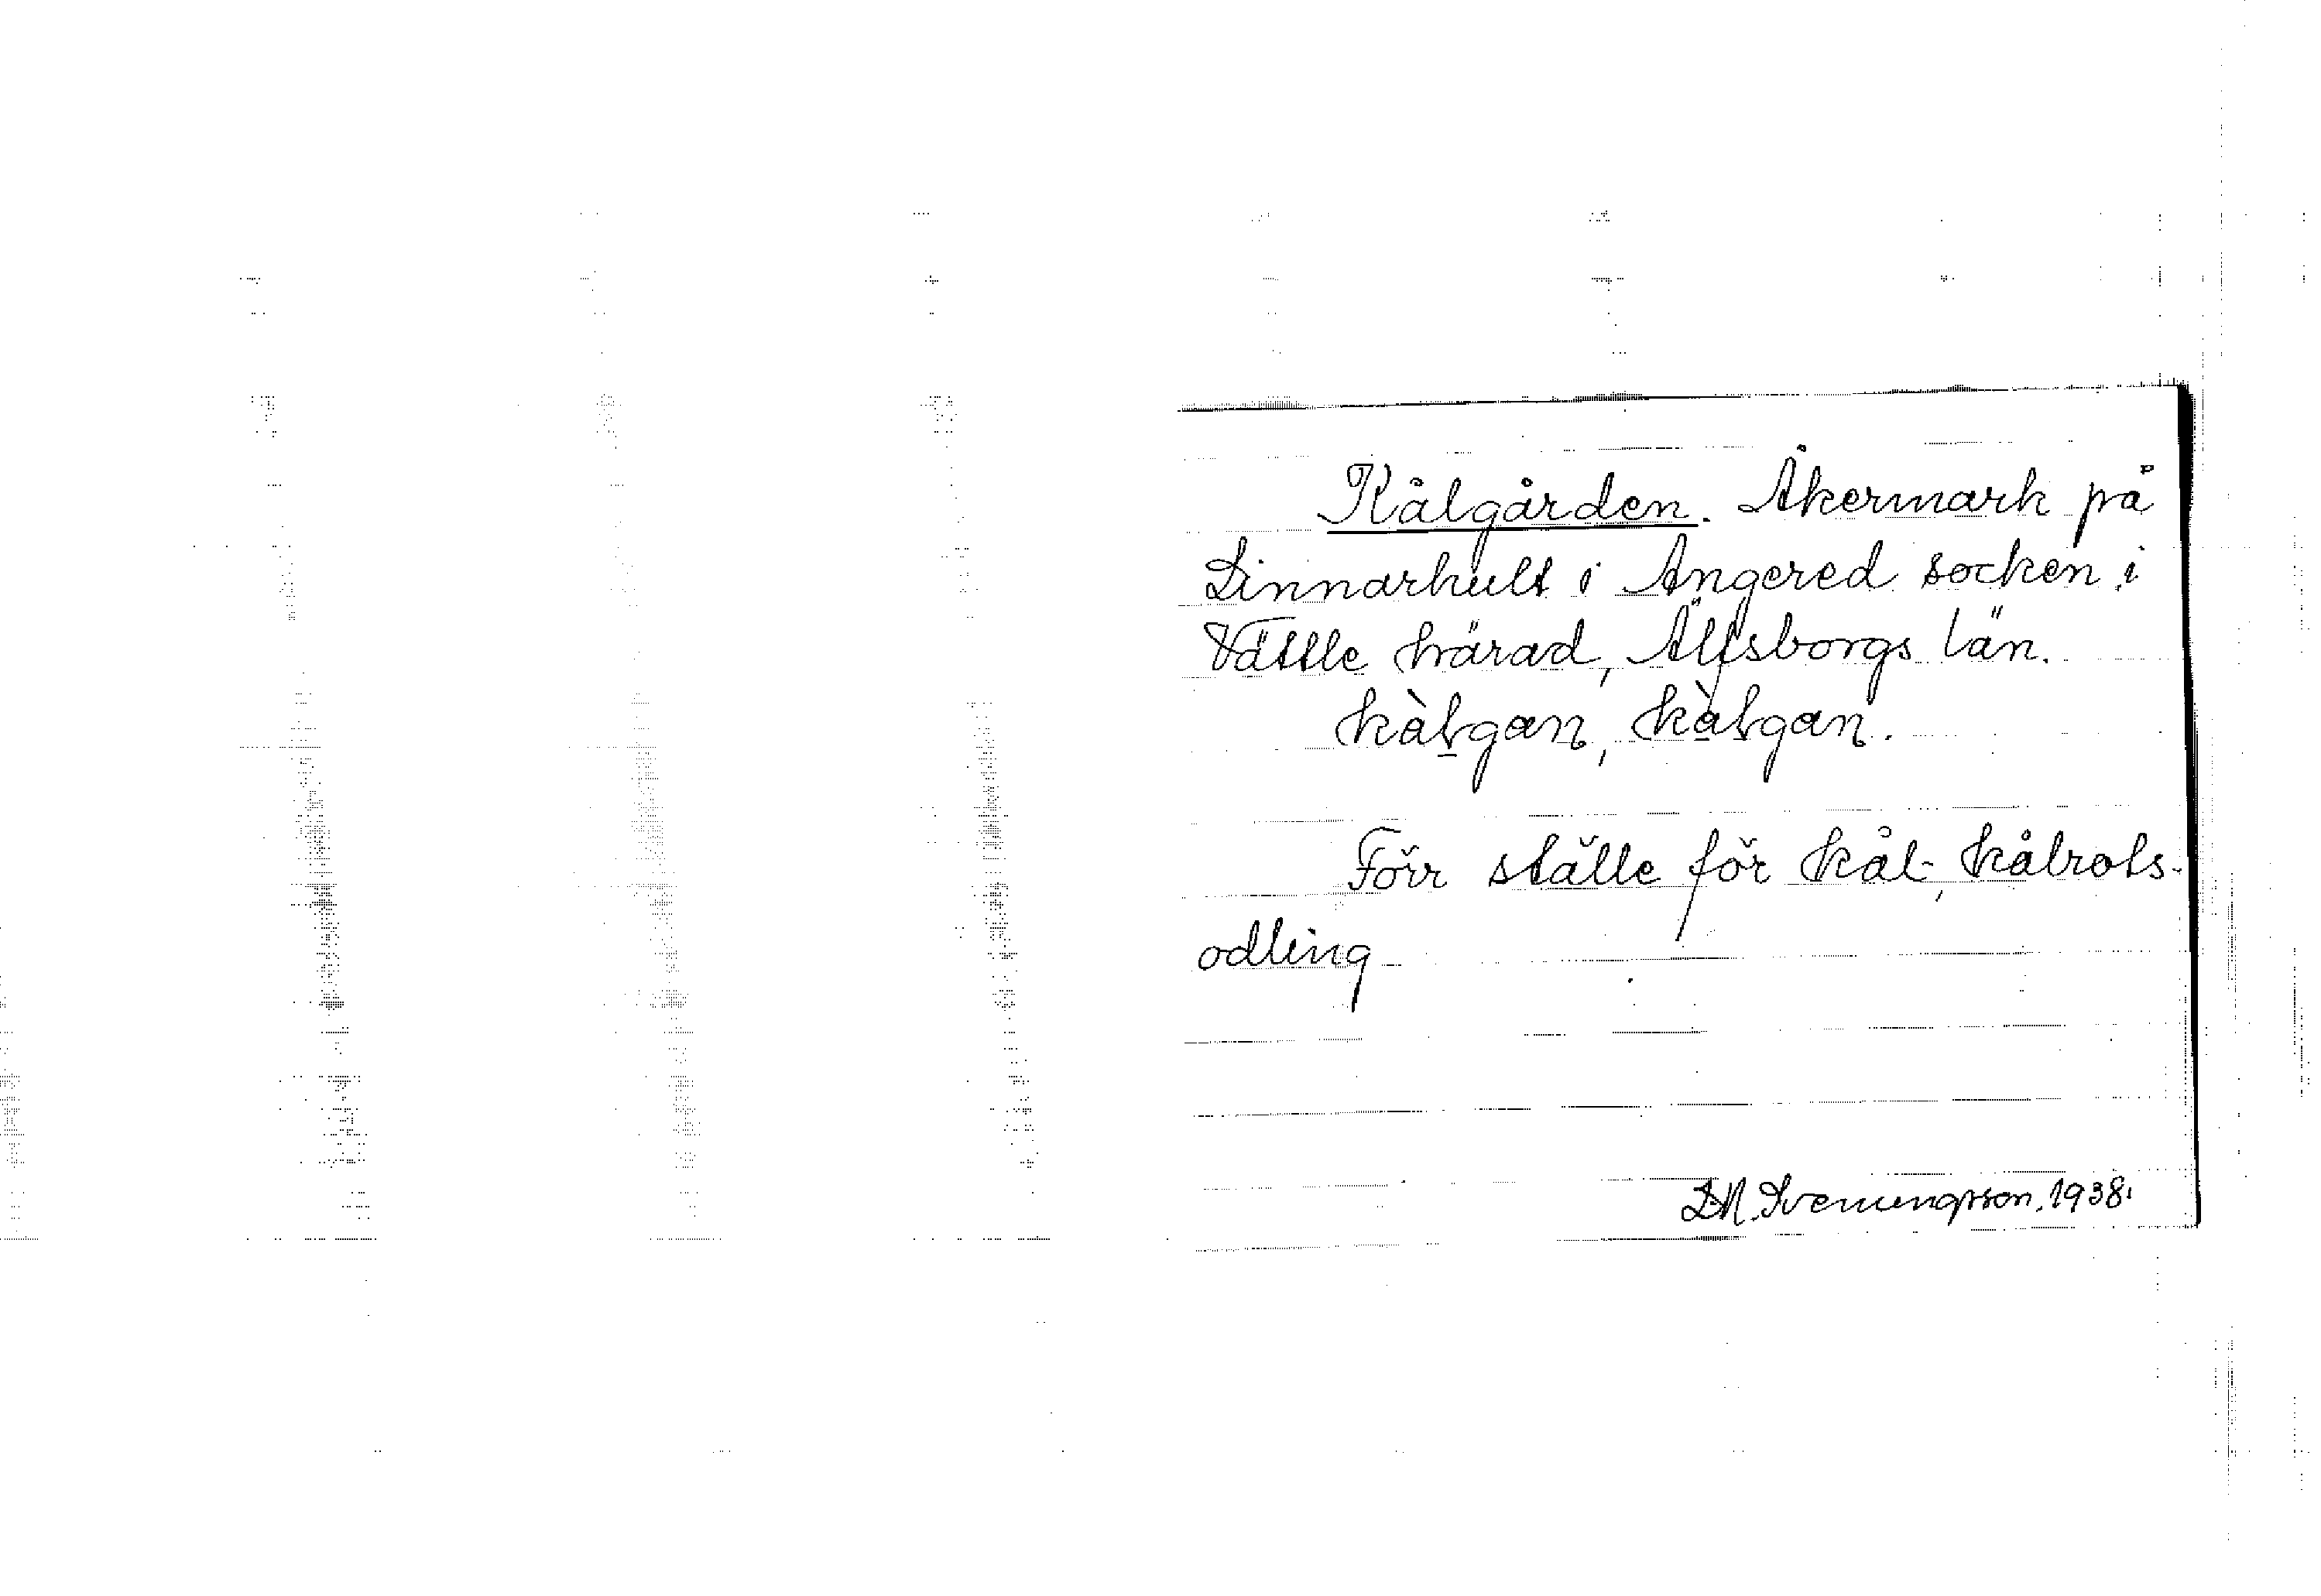 Kålgården. Åkermark på
Linnarhult i Angered socken i
Vättle härad, Älfsborgs län.
kàlgan, kàlgan.
Förr ställe för kål-, kålrots-
odling
D.N. Svenungsson, 1938.